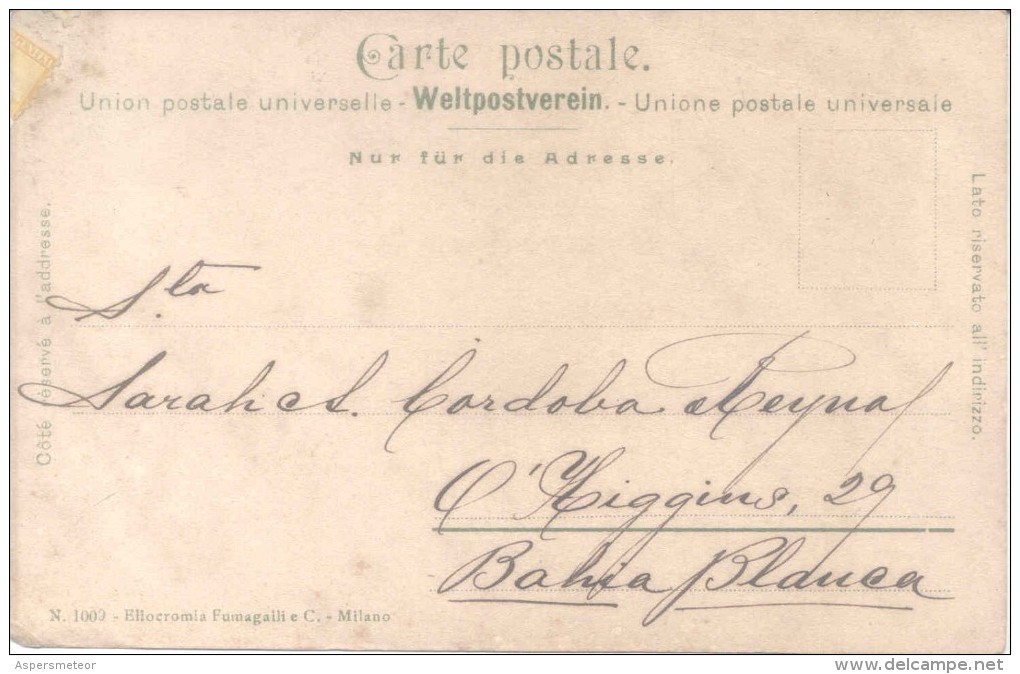 Carte postale.
Union postale universelle - Weltpostverein. - Unione postale universale
Nur für die Adresse.
Côté réservé à l'addresse.
Lato riservato all' indirizzo.
S.ta
Sarah S. Cordoba Reyna
O'Higgins, 29
Bahia Blanca
N. 1009 - Eliocromia Fumagalli e C. - Milano
Aspersmeteor
www.delcampe.net